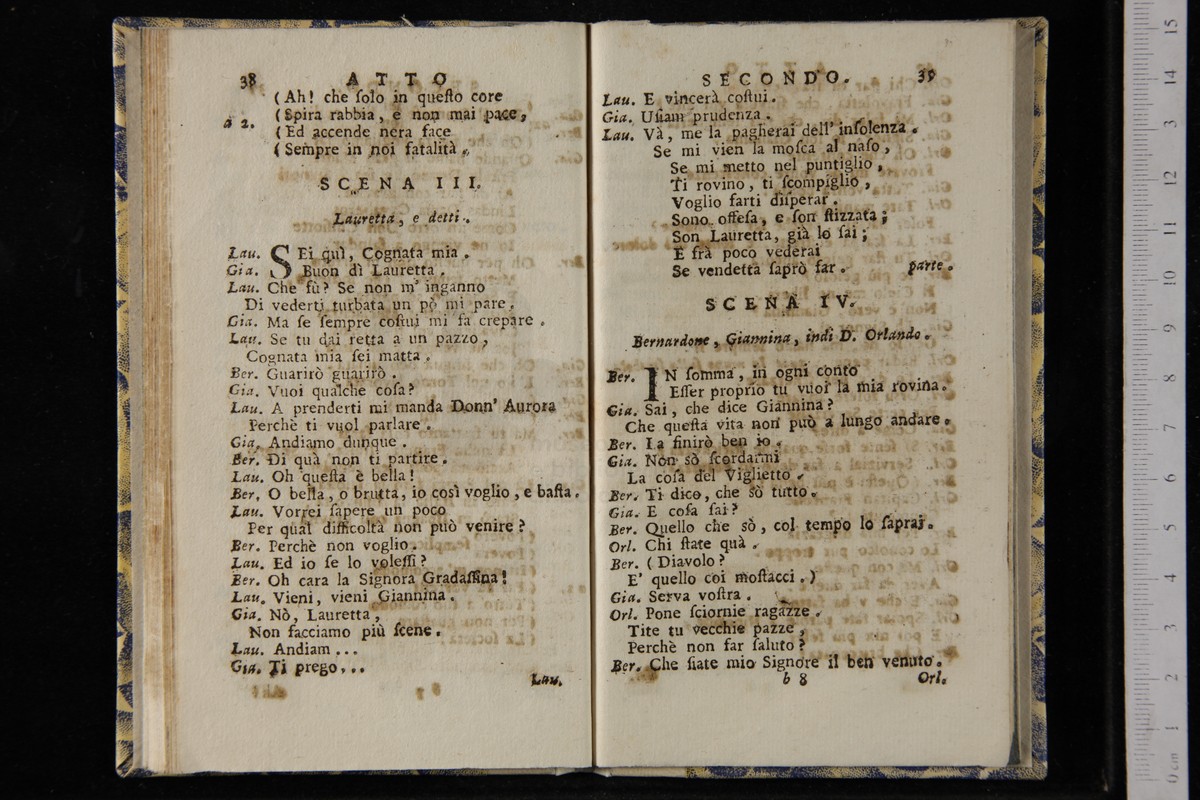 38 ATTO
(Ah! che ſolo in queſto core
(Spira rabbia, e non mai pace,
a 2.
(Ed accende nera face
(Sempre in noi fatalità.
SCENA III.
Lauretta, e detti.
Lau. SEi quì, Cognata mia.
Gia. Buon dì Lauretta.
Lau. Che fù? Se non m' inganno
Di vederti turbata un pò mi pare.
Gia. Ma ſe ſempre coſtui mi fa crepare.
Lau. Se tu dai retta a un pazzo,
Cognata mia ſei matta.
Ber. Guarirò guarirò.
Gia. Vuoi qualche coſa?
Lau. A prenderti mi manda Donn' Aurora
Perchè ti vuol parlare.
Gia. Andiamo dunque.
Ber. Di quà non ti partire.
Lau. Oh queſta è bella!
Ber. O bella, o brutta, io così voglio, e baſta.
Lau. Vorrei ſapere un poco
Per qual difficoltà non può venire?
Ber. Perchè non voglio.
Lau. Ed io ſe lo voleſſi?
Ber. Oh cara la Signora Gradaſſina!
Lau. Vieni, vieni Giannina.
Gia. Nò, Lauretta,
Non facciamo più ſcene.
Lau. Andiam...
Gia. Ti prego...
Lau.
SECONDO. 39
Lau. E vincerà coſtui.
Gia. Uſiam prudenza.
Lau. Và, me la pagherai dell' inſolenza.
Se mi vien la moſca al naſo,
Se mi metto nel puntiglio,
Ti rovino, ti ſcompiglio,
Voglio farti diſperar.
Sono offeſa, e ſon ſtizzata;
Son Lauretta, già lo ſai;
E frà poco vederai
Se vendetta ſaprò far. parte.
SCENA IV.
Bernardone, Giannina, indi D. Orlando.
Ber. IN ſomma, in ogni conto
Eſſer proprio tu vuoi la mia rovina.
Gia. Sai, che dice Giannina?
Che queſta vita non può a lungo andare.
Ber. La finirò ben io.
Gia. Non sò ſcordarmi
La coſa del Viglietto.
Ber. Ti dico, che sò tutto.
Gia. E coſa ſai?
Ber. Quello che sò, col tempo lo ſaprai.
Orl. Chi ſtate quà.
Ber. (Diavolo?
E' quello coi moſtacci.)
Gia. Serva voſtra.
Orl. Pone ſciornie ragazze.
Tite tu vecchie pazze,
Perchè non far ſaluto?
Ber. Che ſiate mio Signore il ben venuto.
b 8 Orl.